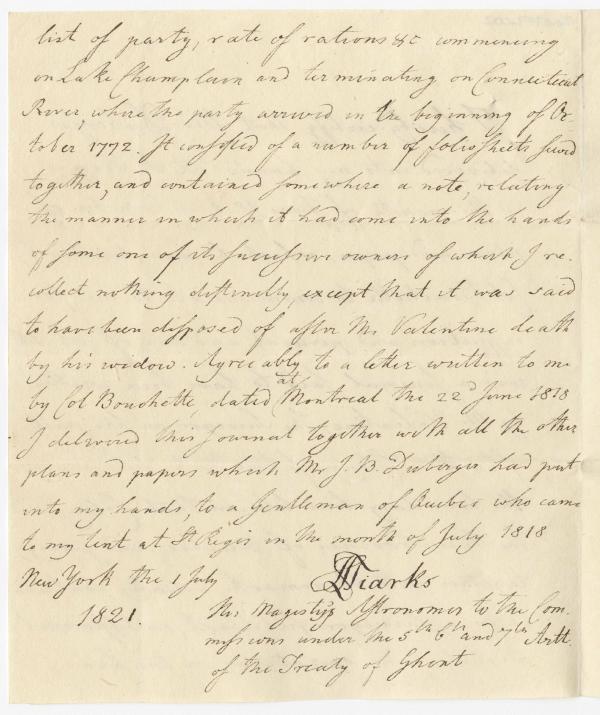 list of party, rate of rations &c commencing
on Lake Champlain and terminating on Connecticut
River, where the party arrived in the beginning of Oc-
tober 1772. It consisted of a number of folio sheets sewed
together, and contained somewhere a note, relating
the manner in which it had come into the hands
of some one of its successive owners of which I re-
collect nothing distinctly, except that it was said
to have been disposed of after Mr. Valentine death
by his widow. Agreeably to a letter written to me
by Col Bouchette, dated at Montreal the 22d June 1818
I delivered this journal together with all the other
plans and papers which Mr J. B. Duberger had put
into my hands, to a Gentleman of Quebec who came
to my tent at St Regis in the month of July 1818
New York the 1 July
1821.
Tiarks
His Magestys Astronomer to the Com-
missions under the 5th 6th and 7th Artt.
of the Treaty of Ghent